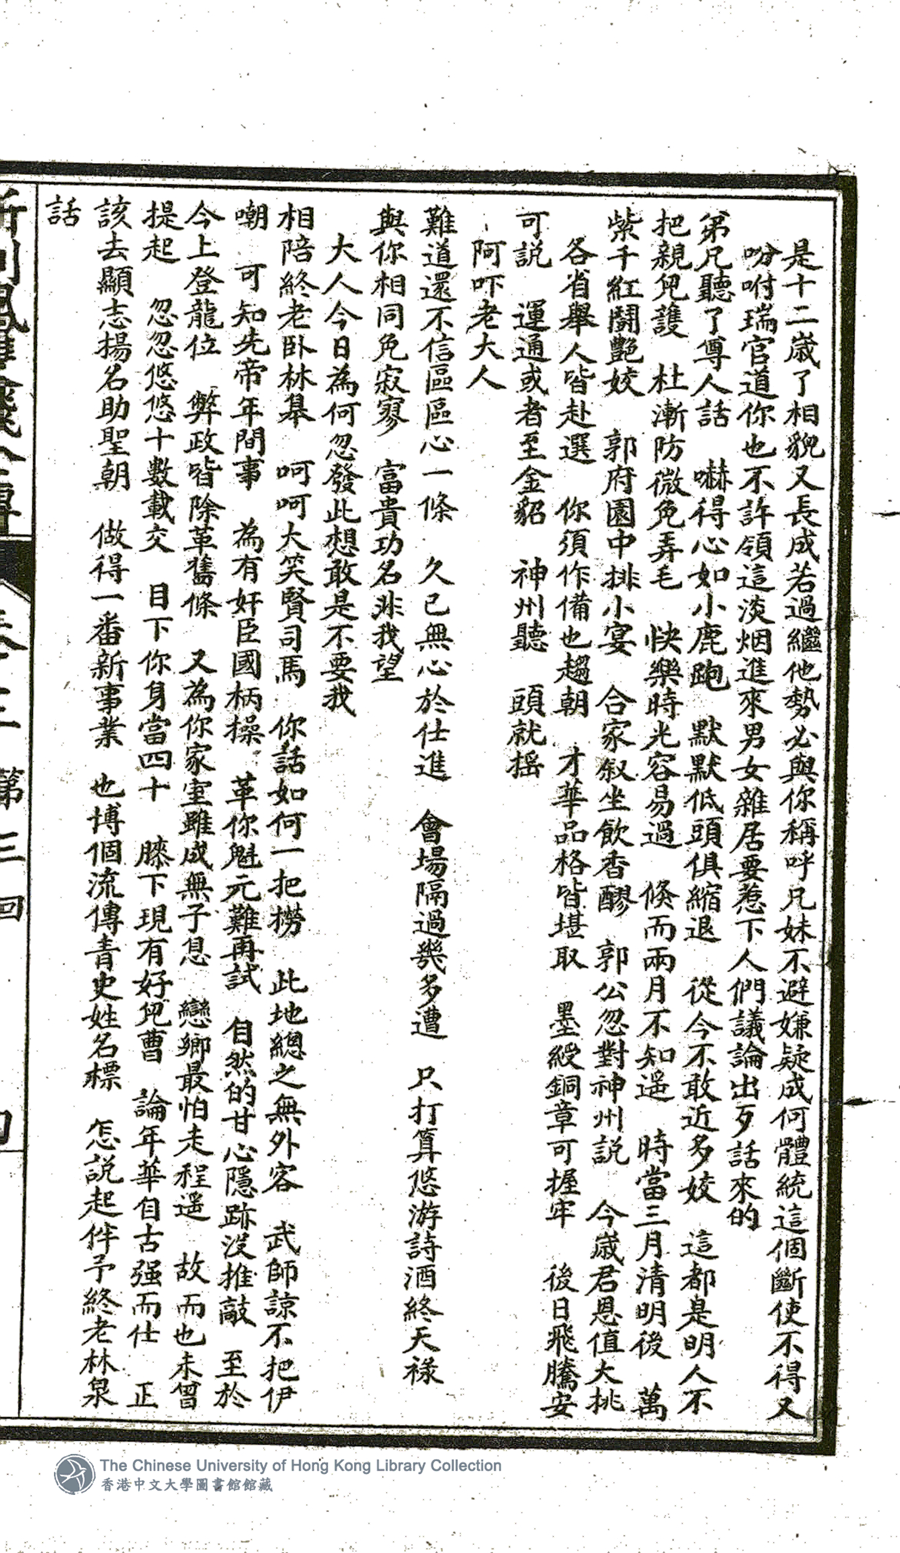 是十二歲了相貌又長成若過繼他勢必與你稱呼兄妹不避嫌疑成何體統這個斷使不得又
吩咐瑞官道你也不許領這淡烟進來男女雜居要惹下人們議論出歹話來的
弟兄聽了尊人話　嚇得心如小鹿跑　默默低頭俱縮退　從今不敢近多姣　這都是明人不
把親兒護　杜漸防微免弄毛　快樂時光容易過　倏而兩月不知遥　時當三月清明後　萬
紫千紅鬪艷姣　郭府園中排小宴　合家叙坐飲香醪　郭公忽對神州説　今歲君恩值大挑
各省舉人皆赴選　你須作備也趨朝　才華品格皆堪取　墨綬銅章可握牢　後日飛騰安
可説　運通或者至金貂　神州聽　頭就摇
阿吓老大人
難道還不信區區心一條　久已無心於仕進　會場隔過幾多遭　只打算悠游詩酒終天禄
與你相同免寂寥　富貴功名非我望
大人今日為何忽發此想敢是不要我
相陪終老卧林臯　呵呵大笑賢司馬　你話如何一把撈　此地總之無外客　武師諒不把伊
嘲　可知先帝年間事　為有奸臣國柄操　革你魁元難再試　自然的甘心隱跡没推敲　至於
今上登龍位　弊政皆除革舊條　又為你家室雖成無子息　戀鄉最怕走程遥　故而也未曾
提起　忽忽悠悠十數載交　目下你身當四十　膝下現有好兒曹　論年華自古强而仕　正
該去顯志揚名助聖朝　做得一番新事業　也博個流傳青史姓名標　怎説起伴予終老林泉
話
第三回
The Chinese University of Hong Kong Library Collection
香港中文大學圖書館館藏